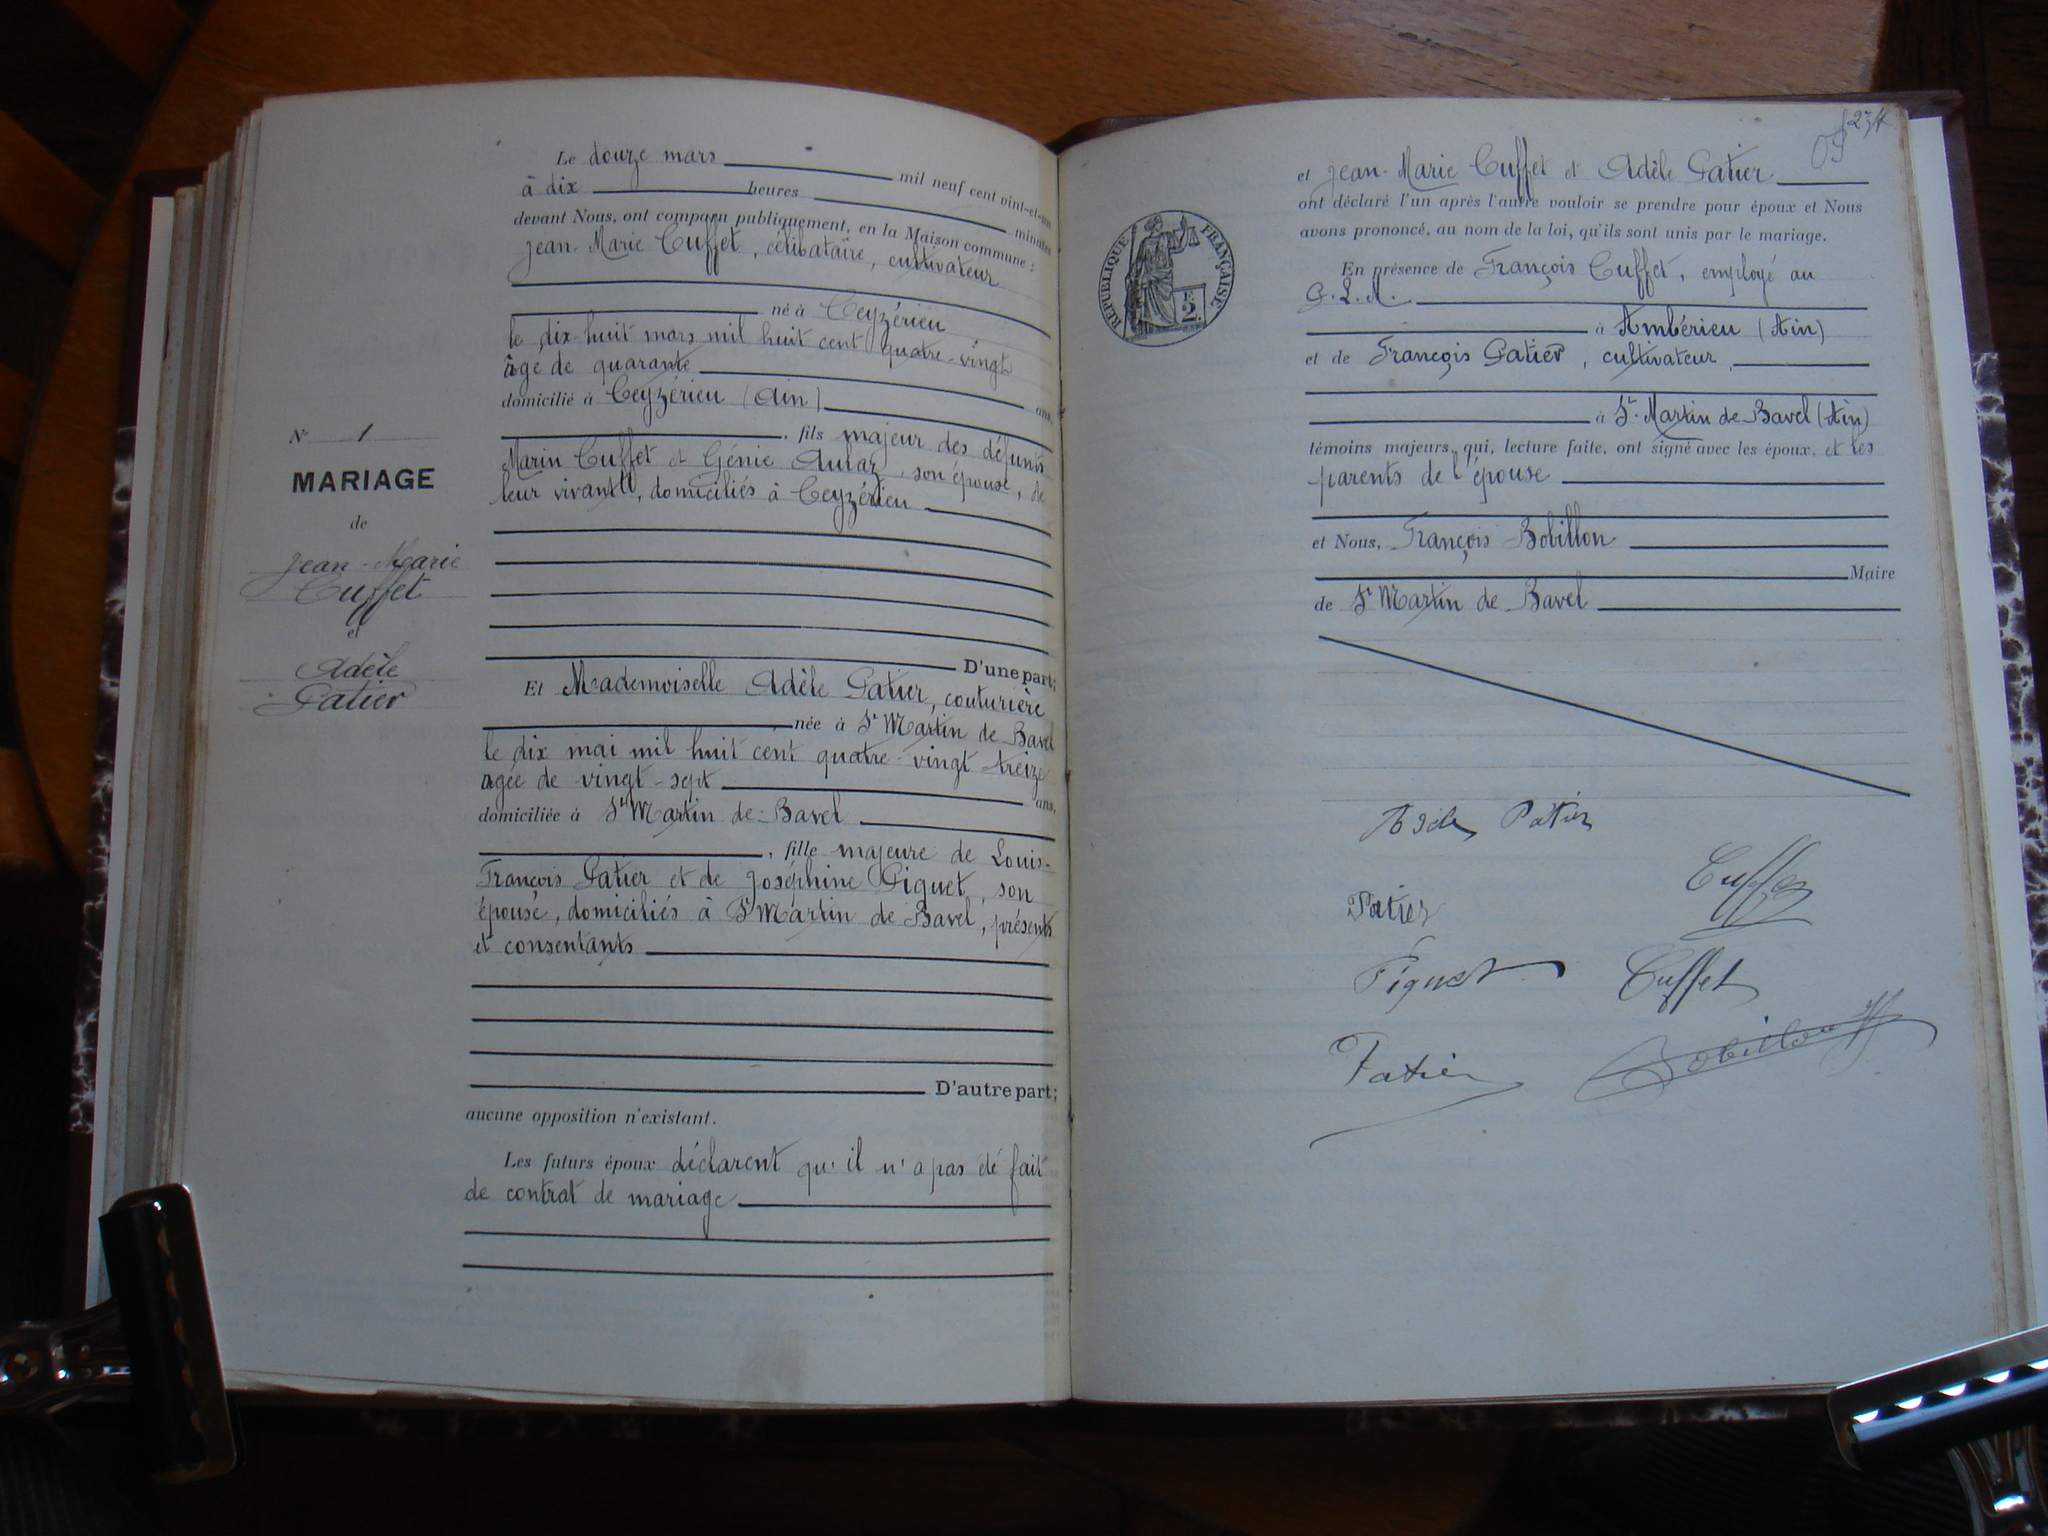 Le douze mars mil neuf cent vint-et-un
à dix heures minutes
devant Nous, ont comparu publiquement, en la Maison commune :
Jean-Marie Cuffet, célibataire, cultivateur
né à Ceyzérieu
le dix-huit mars mil huit cent quatre-vingt
âgé de quarante ans,
domicilié à Ceyzérieu (Ain)
, fils majeur des défunts
Marin Cuffet et Génie, son épouse, de
leur vivant, domiciliés à Ceyzérieu
N° 1
MARIAGE
de
Jean-Marie
Cuffet
et
Adèle
Patier
D'une part;
Et Mademoiselle Adèle Patier, couturière
née à St Martin de Bavel
le dix mai mil huit cent quatre-vingt-treize
agée de vingt-sept ans,
domiciliée à St Martin de Bavel
, fille majeure de Louis-
François Patier et de Joséphine Piguet, son
épouse, domiciliés à St Martin de Bavel, présents
et consentants
D'autre part;
aucune opposition n'existant.
Les futurs époux déclarent qu'il n'a pas été fait
de contrat de mariage
et Jean-Marie Cuffet et Adèle Patier
ont déclaré l'un après l'autre vouloir se prendre pour époux et Nous
avons prononcé, au nom de la loi, qu'ils sont unis par le mariage.
RÉPUBLIQUE FRANÇAISE
2
En présence de François Cuffet, employé au
P. L. M.
à Ambérieu (Ain)
et de François Patier, cultivateur,
à St-Martin de Bavel (Ain)
témoins majeurs, qui, lecture faite, ont signé avec les époux, et les
parents de l'épouse
et Nous, François Bobillon
Maire
de St Martin de Bavel
Adèle Patier
Cuffet
Patier
Piguet
Cuffet
Patier
Bobillon